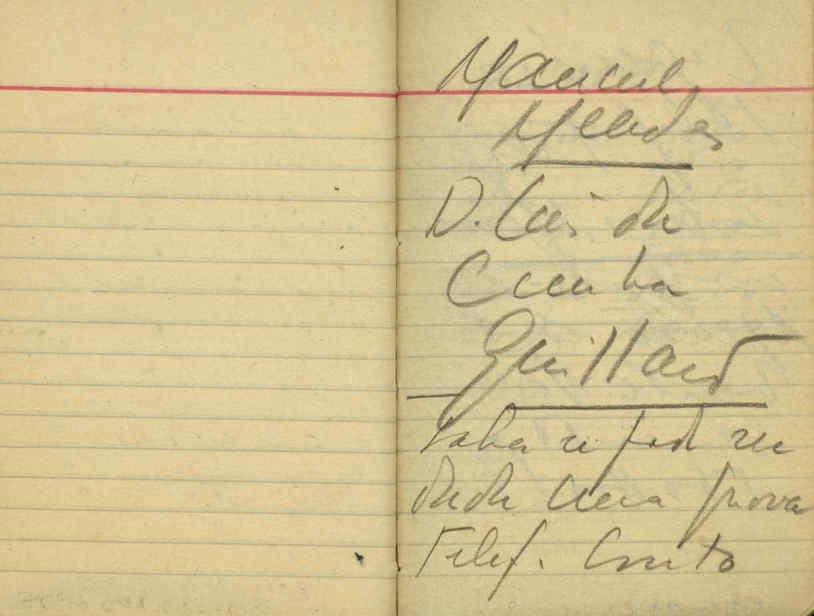 Manuel
Mendes
D. Luis da
Cunha
Guilland
saber se pode ser
dada uma prova
Telef. Couto